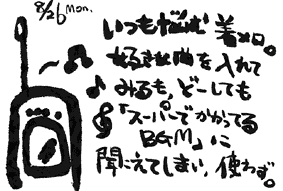 8/26 mon.
いつも悩む着メロ。
好きな曲を入れて
みるも、どーしても
「スーパーでかかってる
BGM」に
聞こえてしまい、使わず。